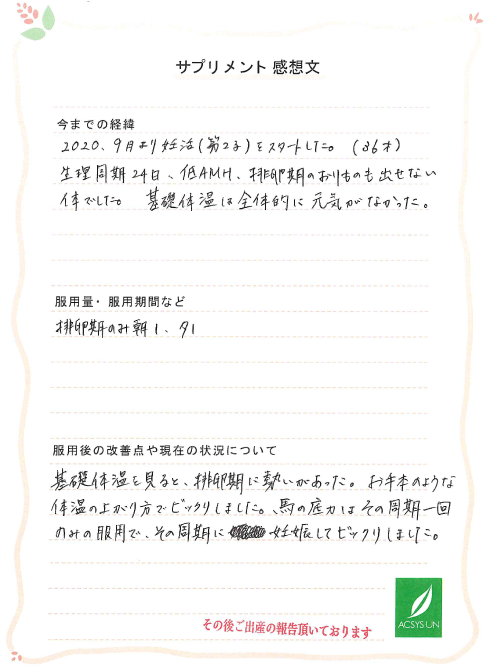 サプリメント 感想文
今までの経緯
2020、9月より妊活(第2子)をスタートした。(36才)
生理周期24日、低AMH、排卵期のおりものも出せない
体でした。 基礎体温は全体的に元気がなかった。
服用量・服用期間など
排卵期のみ朝1、夕1
服用後の改善点や現在の状況について
基礎体温を見ると、排卵期に勢いがあった。お手本のような
体温の上がり方でビックリしました。、馬の底力はその周期一回
のみの服用で、その周期に妊娠してビックリしました。
その後ご出産の報告頂いております
ACSYSUN